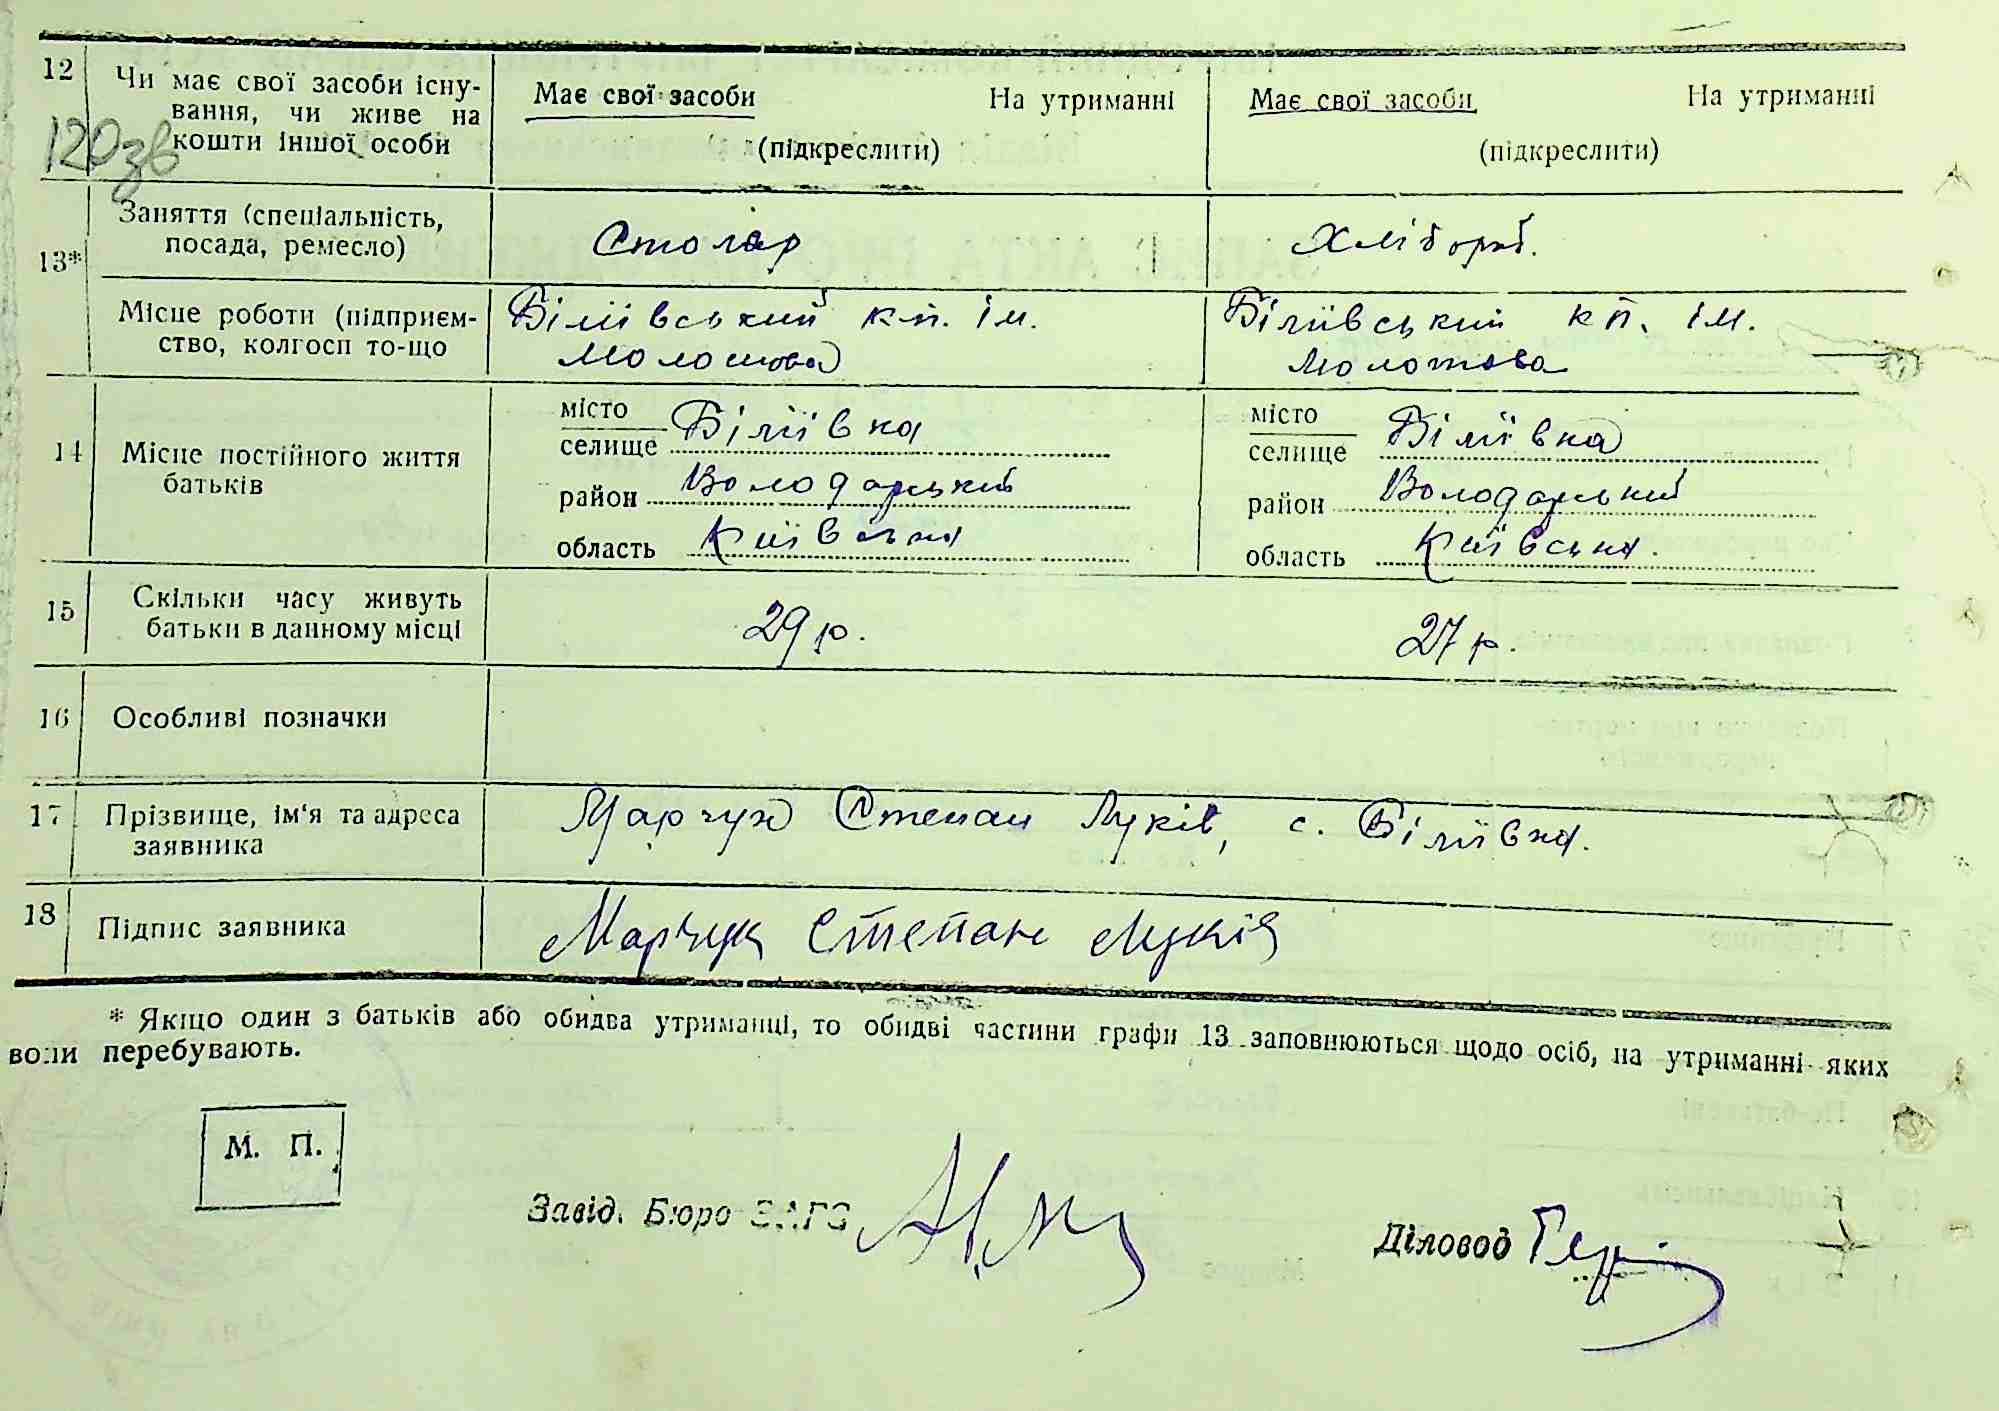 12 Чи має свої засоби існу- Має свої засоби На утриманні Має свої засоби На утриманні
вання, чи живе на
кошти іншої особи (підкреслити) (підкреслити)
120зв
13* Заняття (спеціальність, Столяр Хлібороб.
посада, ремесло)
Місце роботи (підприєм- Біліївський кп. ім. Біліївський кп. ім.
ство, колгосп то-що Молотова Молотова
14 Місце постійного життя місто Біліївка місто Біліївка
батьків селище селище
район Володарський район Володарський
область Київська область Київська.
15 Скільки часу живуть 29 р. 27 р.
батьки в данному місці
16 Особливі позначки
17 Прізвище, ім'я та адреса Марчук Степан Луків, с. Біліївка.
заявника
18 Підпис заявника Марчук Степан Луків
* Якщо один з батьків або обидва утриманці, то обидві частини графи 13 заповнюються щодо осіб, на утриманні яких
вони перебувають.
М. П.
Завід. Бюро ЗАГС Діловод